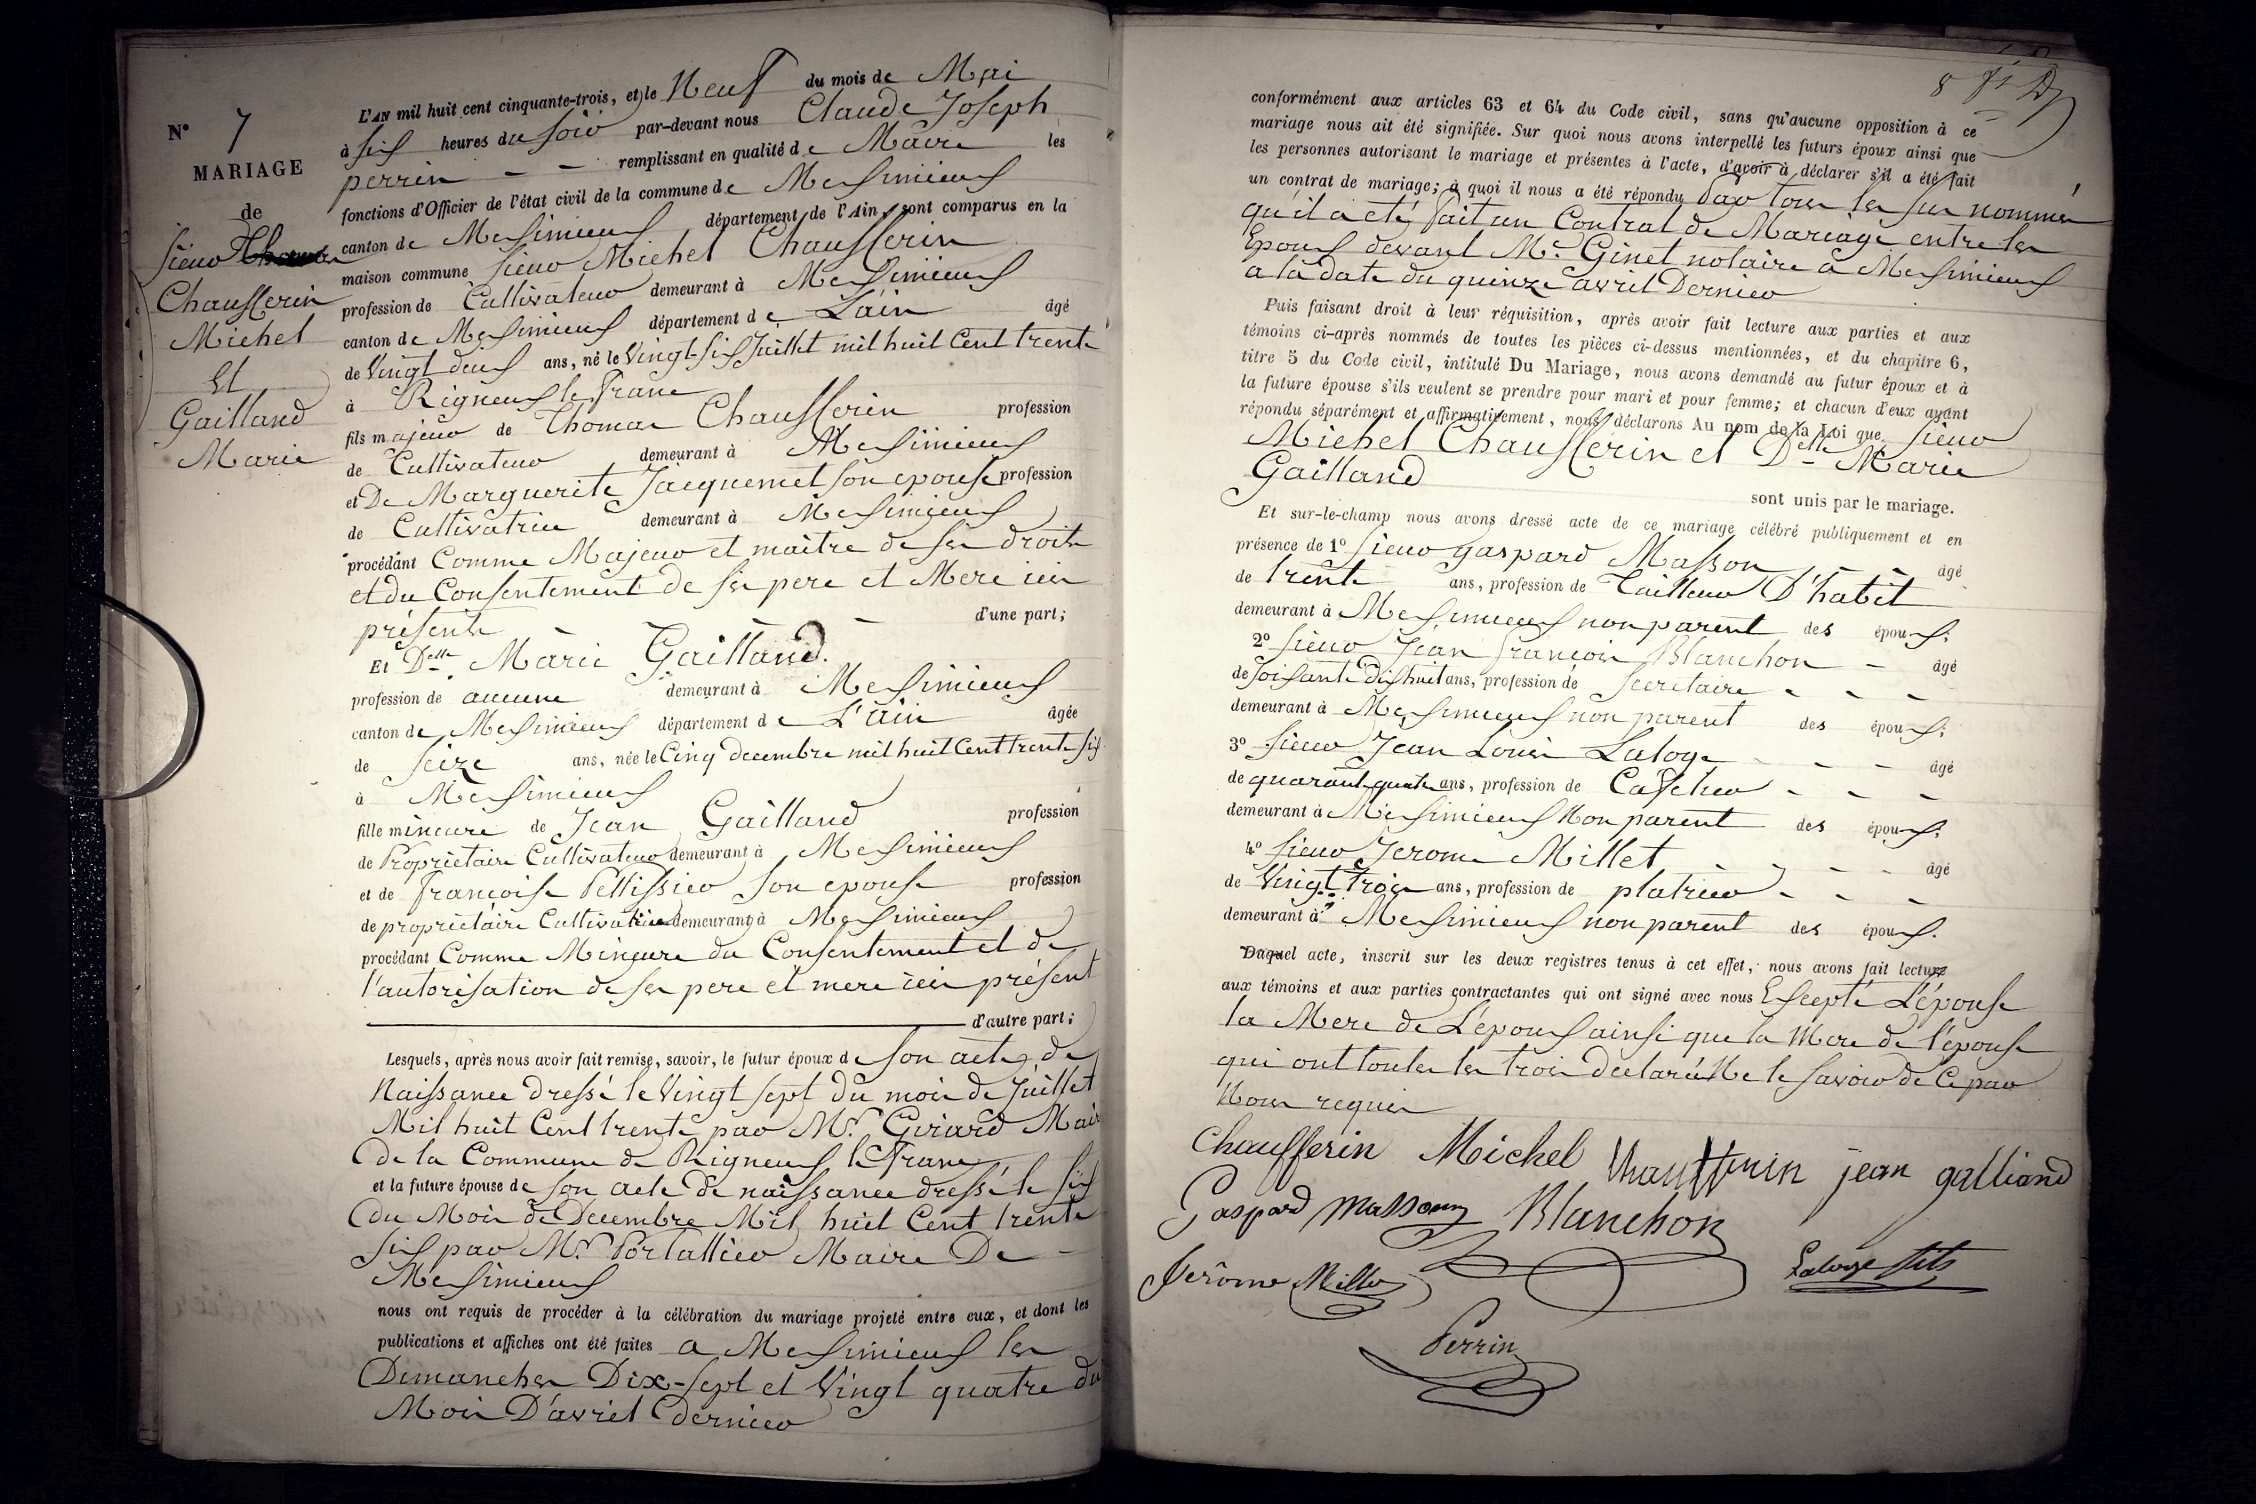 N° 7
MARIAGE
de
Sieur
Chaufferin
Michel
Et
Gailland
Marie
L'AN mil huit cent cinquante-trois, et le Neuf du mois de Mai
à six heures du soir par-devant nous Claude Joseph
perrin - - remplissant en qualité de Maire les
fonctions d'Officier de l'état civil de la commune de Meximieux
canton de Meximieux département de l'Ain, sont comparus en la
maison commune Sieur Michel Chaufferin
profession de Cultivateur demeurant à Meximieux
canton de Meximieux département de L'ain âgé
de Vingt deux ans, né le Vingt-six Juillet mil huit Cent trente
à Rigneux le franc
fils majeur de Thomas Chaufferin profession
de Cultivateur demeurant à Meximieux
et De Marguerite Jacquemet son epouse profession
de Cultivatrice demeurant à Meximieux
procédant Comme Majeur et maitre de ses droits
et du Consentement de ses pere et Mere ici
présents - - - - d'une part;
Et Delle Marie Gailland.
profession de aucune demeurant à Meximieux
canton de Meximieux département de L'ain âgée
de seize ans, née le Cinq decembre mil huit Cent trente six
à Meximieux
fille mineure de Jean Gailland profession
de Propriétaire Cultivateur demeurant à Meximieux
et de françoise Pellissier son epouse profession
de propriétaire Cultivatrice demeurant à Meximieux
procédant Comme Mineure du Consentement et de
l'autorisation de ses pere et mere ici présent
d'autre part;
Lesquels, après nous avoir fait remise, savoir, le futur époux de son acte de
Naissance dressé le Vingt sept du mois de Juillet
Mil huit Cent trente par Mr. Girard Maire
de la Commune de Rigneux le franc
et la future épouse de son acte de naissance dressé le six
du Mois de Decembre Mil huit Cent trente
six par Mr. Portallier Maire De -
Meximieux
nous ont requis de procéder à la célébration du mariage projeté entre eux, et dont les
publications et affiches ont été faites a Meximieux les
Dimanches Dix-sept et Vingt quatre du
Mois D'avril dernier
8
conformément aux articles 63 et 64 du Code civil, sans qu'aucune opposition à ce
mariage nous ait été signifiée. Sur quoi nous avons interpellé les futurs époux ainsi que
les personnes autorisant le mariage et présentes à l'acte, d'avoir à déclarer s'il a été fait
un contrat de mariage; à quoi il nous a été répondu par tous les sus nommés
qu'il a eté fait un Contrat de Mariage entre les
Epoux devant Me. Ginet notaire a Meximieux
a la date du quinze avril Dernier
Puis faisant droit à leur réquisition, après avoir fait lecture aux parties et aux
témoins ci-après nommés de toutes les pièces ci-dessus mentionnées, et du chapitre 6,
titre 5 du Code civil, intitulé Du Mariage, nous avons demandé au futur époux et à
la future épouse s'ils veulent se prendre pour mari et pour femme; et chacun d'eux ayant
répondu séparément et affirmativement, nous déclarons Au nom de la Loi que Sieur
Michel Chaufferin et Delle Marie
Gailland
sont unis par le mariage.
Et sur-le-champ nous avons dressé acte de ce mariage célébré publiquement et en
présence de 1° Sieur gaspard Masson - - âgé
de trente ans, profession de Tailleur D'habit
demeurant à Meximieux non parent des époux.
2° Sieur Jean françois Blanchon - âgé
de soixante dix huit ans, profession de Secretaire - - -
demeurant à Meximieux non parent des époux.
3° Sieur Jean Louis Laloge - - - âgé
de quarante quatre ans, profession de Cafetier - - -
demeurant à Meximieux Non parent des époux.
4° Sieur Jerome Millet - - - âgé
de Vingt trois ans, profession de platrier - - -
demeurant à Meximieux non parent des époux.
Duquel acte, inscrit sur les deux registres tenus à cet effet, nous avons fait lecture
aux témoins et aux parties contractantes qui ont signé avec nous Excepté L'épouse
la Mere de L'epoux ainsi que la Mere de l'épouse
qui ont toutes les trois declaré Ne le savoir de Ce par
Nous requis
Chaufferin Michel Chaufferin jean galliand
Gaspard Masson Blanchon
Jerôme Millet Laloge fils
Perrin